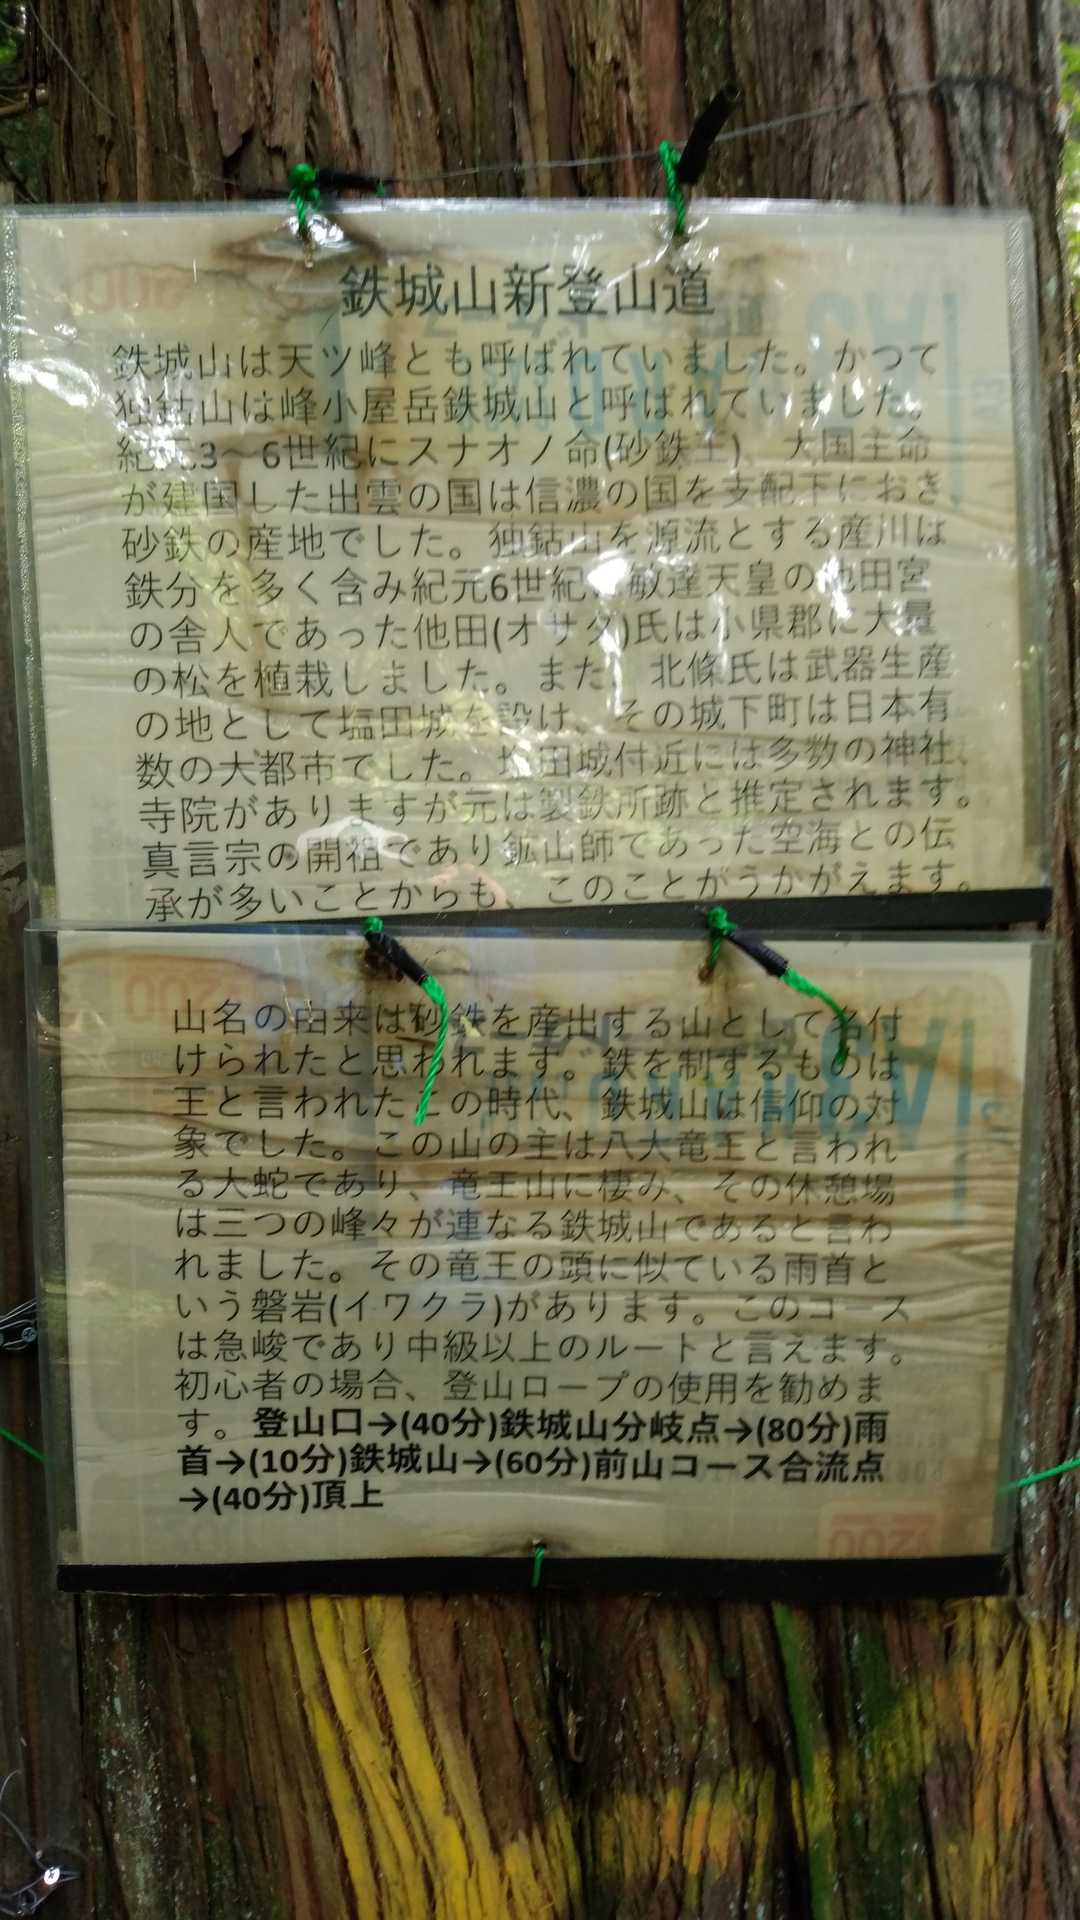 鉄城山新登山道
鉄城山は天ツ峰とも呼ばれていました。かつて
独鈷山は峰小屋岳鉄城山と呼ばれていました。
紀元3～6世紀にスナオノ命(砂鉄王)、大国主命
が建国した出雲の国は信濃の国を支配下におき
砂鉄の産地でした。独鈷山を源流とする産川は
鉄分を多く含み紀元6世紀に敏達天皇の他田宮
の舎人であった他田(オサダ)氏は小県郡に大量
の松を植栽しました。また、北條氏は武器生産
の地として塩田城を設け、その城下町は日本有
数の大都市でした。塩田城付近には多数の神社、
寺院がありますが元は製鉄所跡と推定されます。
真言宗の開祖であり鉱山師であった空海との伝
承が多いことからも、このことがうかがえます。
山名の由来は砂鉄を産出する山として名付
けられたと思われます。鉄を制するものは
王と言われたこの時代、鉄城山は信仰の対
象でした。この山の主は八大竜王と言われ
る大蛇であり、竜王山に棲み、その休憩場
は三つの峰々が連なる鉄城山であると言わ
れました。その竜王の頭に似ている雨首と
いう磐岩(イワクラ)があります。このコース
は急峻であり中級以上のルートと言えます。
初心者の場合、登山ロープの使用を勧めま
す。登山口→(40分)鉄城山分岐点→(80分)雨
首→(10分)鉄城山→(60分)前山コース合流点
→(40分)頂上